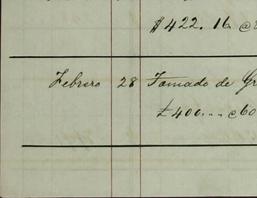 $422.16. @
Febrero 28 Tomado de Gr
£400... @ 60